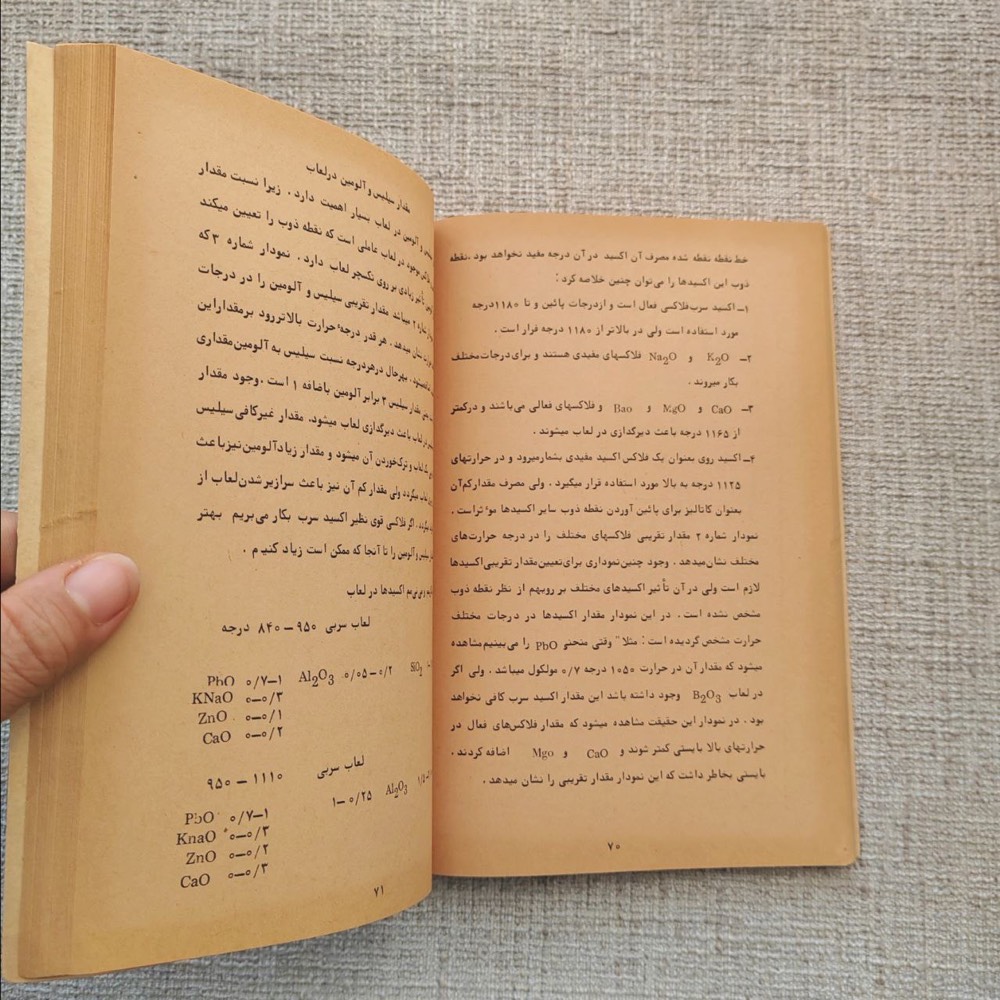 خط نقطه نقطه شده مصرف آن اکسید در آن درجه مفید نخواهد بود. نقطه
ذوب این اکسیدها را می‌توان چنین خلاصه کرد :
۱ـ اکسید سرب فلاکسی فعال است و از درجات پائین و تا ۱۱۸۰ درجه
مورد استفاده است ولی در بالاتر از ۱۱۸۰ درجه فرار است .
۲ـ K2O و Na2O فلاکسهای مفیدی هستند و برای درجات مختلف
بکار میروند .
۳ـ CaO و MgO و Bao و فلاکسهای فعالی می‌باشند و در کمتر
از ۱۱۶۵ درجه باعث دیرگدازی در لعاب میشوند .
۴ـ اکسید روی بعنوان یک فلاکس اکسید مفیدی بشمار میرود و در حرارتهای
۱۱۲۵ درجه به بالا مورد استفاده قرار میگیرد . ولی مصرف مقدار کم آن
بعنوان کاتالیز برای پائین آوردن نقطه ذوب سایر اکسیدها موٴثر است .
نمودار شماره ۲ مقدار تقریبی فلاکسهای مختلف را در درجه حرارت‌های
مختلف نشان میدهد . وجود چنین نموداری برای تعیین مقدار تقریبی اکسیدها
لازم است ولی در آن تأثیر اکسیدهای مختلف بر رویهم از نظر نقطه ذوب
مشخص نشده است . در این نمودار مقدار اکسیدها در درجات مختلف
حرارت مشخص گردیده است : مثلا" وقتی منحنی PbO را می‌بینیم مشاهده
میشود که مقدار آن در حرارت ۱۰۵۰ درجه ۰/۷ مولکول میباشد . ولی اگر
در لعاب B2O3 وجود داشته باشد این مقدار اکسید سرب کافی نخواهد
بود . در نمودار این حقیقت مشاهده میشود که مقدار فلاکس‌های فعال در
حرارتهای بالا بایستی کمتر شوند و CaO و Mgo اضافه کردند .
بایستی بخاطر داشت که این نمودار مقدار تقریبی را نشان میدهد .
۷۰
مقدار سیلیس و آلومین در لعاب
و آلومین در لعاب بسیار اهمیت دارد . زیرا نسبت مقدار
موجود در لعاب عاملی است که نقطه ذوب را تعیین میکند
تأثیر زیادی بر روی تکسچر لعاب دارد . نمودار شماره ۳ که
شماره ۲ میباشد مقدار تقریبی سیلیس و آلومین را در درجات
نشان میدهد . هر قدر درجهٴ حرارت بالاتر رود بر مقدار این
میشود . بهرحال در هر درجه نسبت سیلیس به آلومین مقداری
مقدار سیلیس ۳ برابر آلومین باضافه ۱ است . وجود مقدار
در لعاب باعث دیرگدازی لعاب میشود. مقدار غیر کافی سیلیس
و ترک‌خوردن آن میشود و مقدار زیاد آلومین نیز باعث
میگردد ولی مقدار کم آن نیز باعث سرازیر شدن لعاب از
میگردد . اگر فلاکسی قوی نظیر اکسید سرب بکار می‌بریم بهتر
سیلیس و آلومین را تا آنجا که ممکن است زیاد کنیم .
اکسیدها در لعاب
لعاب سربی ۹۵۰ – ۸۴۰ درجه
PbO ۰/۷–۱ Al2O3 ۰/۰۵–۰/۲ SiO2
KNaO ۰–۰/۳
ZnO ۰–۰/۱
CaO ۰–۰/۲
لعاب سربی ۱۱۱۰ – ۹۵۰
۱–۰/۲۵ Al2O3
PbO ۰/۷–۱
KnaO ۰–۰/۳
ZnO ۰–۰/۲
CaO ۰–۰/۳
۷۱